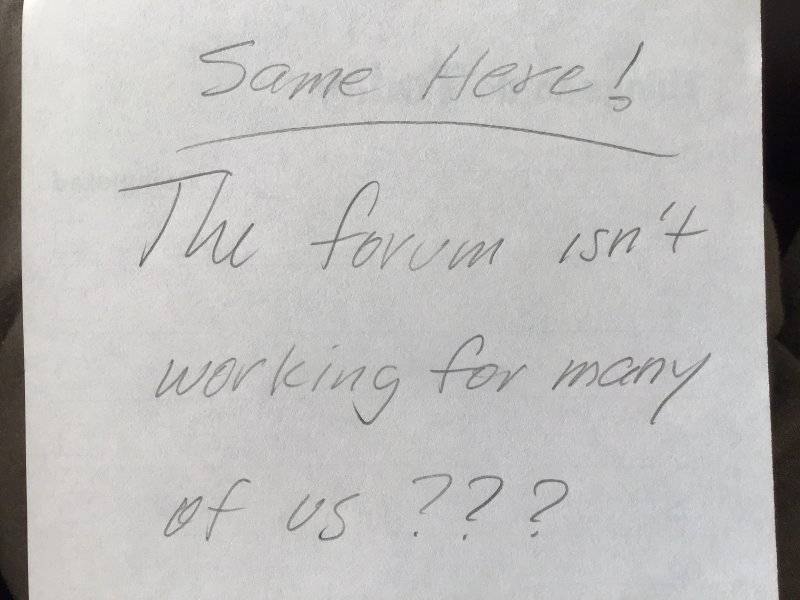 Same Here!
The forum isn't
working for many
of us ???